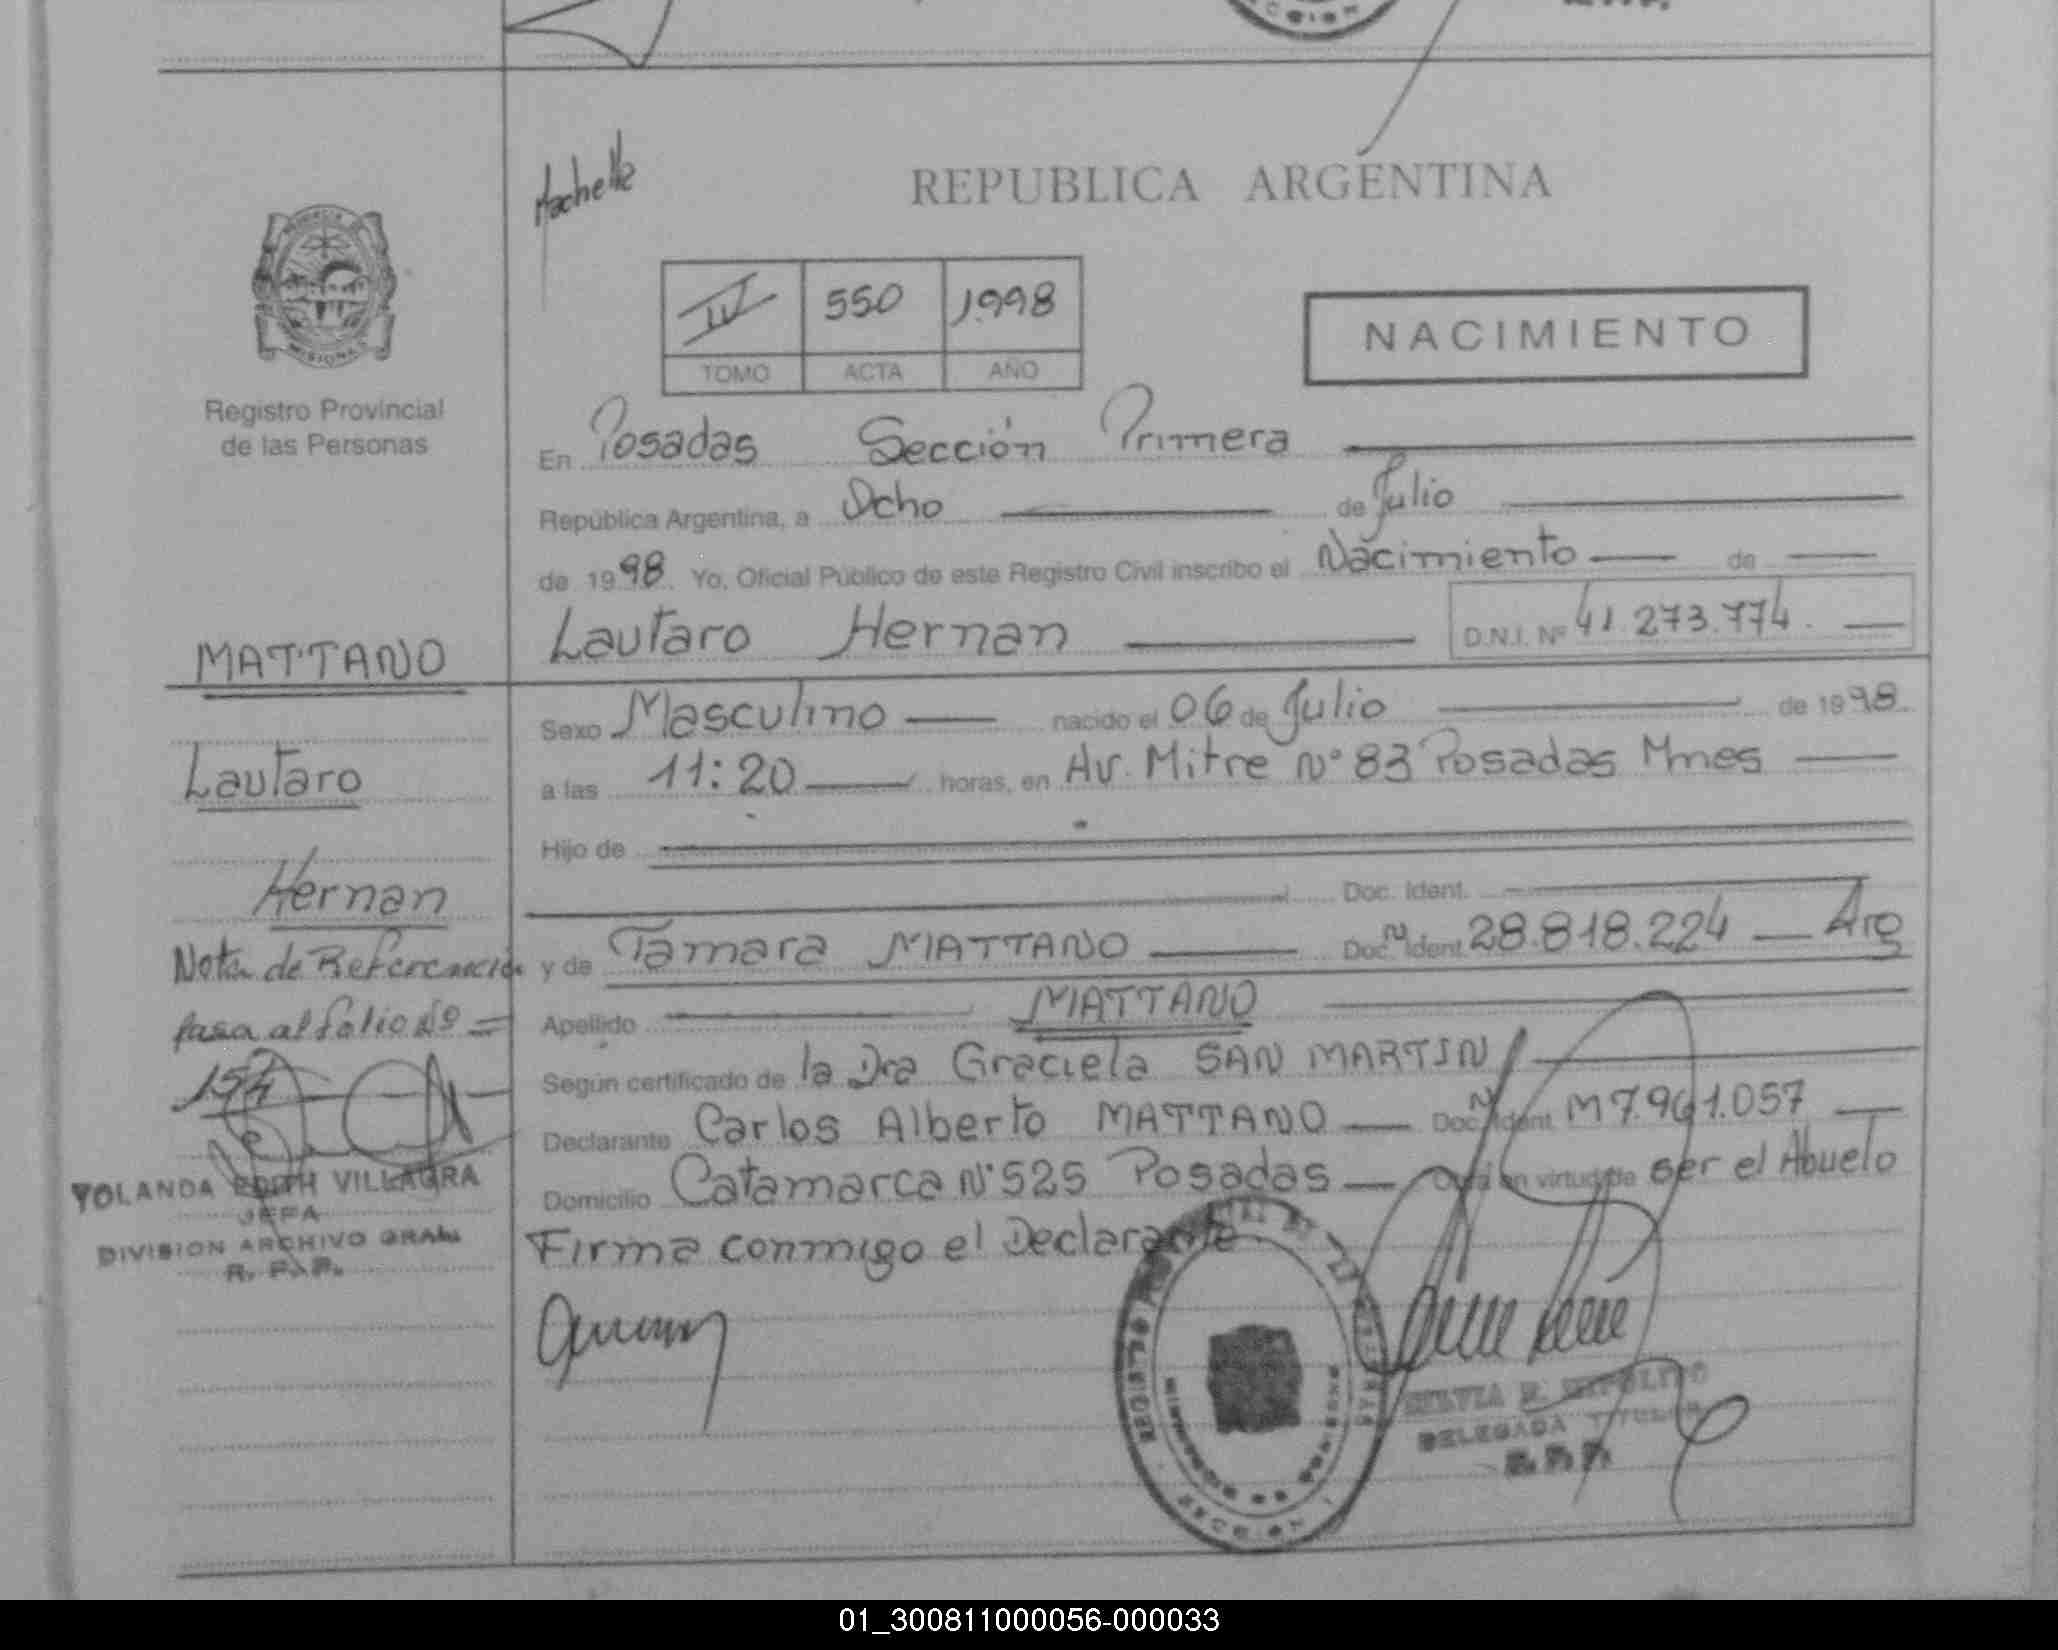 REPUBLICA ARGENTINA
MISIONES
Registro Provincial
de las Personas
IV 550 1998
TOMO ACTA AÑO
NACIMIENTO
En Posadas Sección Primera
República Argentina, a Ocho de Julio
de 1998 Yo, Oficial Público de este Registro Civil inscribo el Nacimiento de
Lautaro Hernan D.N.I. Nº 41.273.774.
MATTANO
Lautaro
Hernan
Sexo Masculino nacido el 06 de Julio de 1998
a las 11:20 horas, en Av. Mitre Nº 83 Posadas Mnes
Hijo de
Doc. Ident.
y de Tamara MATTANO Doc. Ident. N 28.818.224 Arg
Apellido MATTANO
Según certificado de la Dra Graciela SAN MARTIN
Declarante Carlos Alberto MATTANO Doc. Ident. N M7.961.057
Domicilio Catamarca Nº 525 Posadas Obra en virtud de ser el Abuelo
Firma conmigo el Declarante
Nota de
pasa al folio Nº =
154
YOLANDA EDITH VILLAGRA
JEFA
DIVISION ARCHIVO GRAL.
R. P. P.
SILVIA
DELEGADA TITULAR
R. P. P.
SECCION
01_300811000056-000033